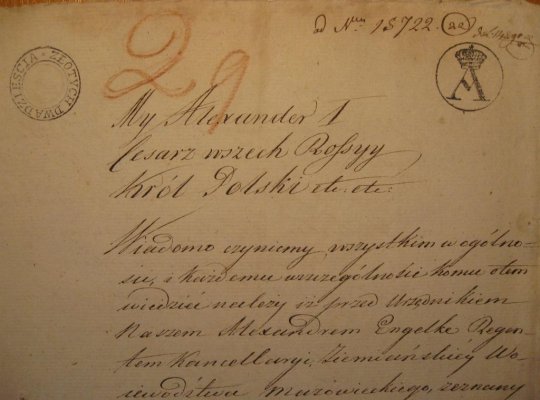 ad Nrum 18722. 22
ZŁOTYCH DWADZIEŚCIA
A
29
My Alexander I
Cesarz wszech Rossyy
Król Polski etc: etc:
Wiadomo czyniemy, wszystkim w ogólno-
ści, i każdemu wszczególności komu otem
wiedzieć należy iż przed Urzędnikiem
Naszem Alexandrem Engelke Regen-
tem Kancellaryi, Ziemiańskiéy Wo-
iewództwa mazówieckiego, zeznany